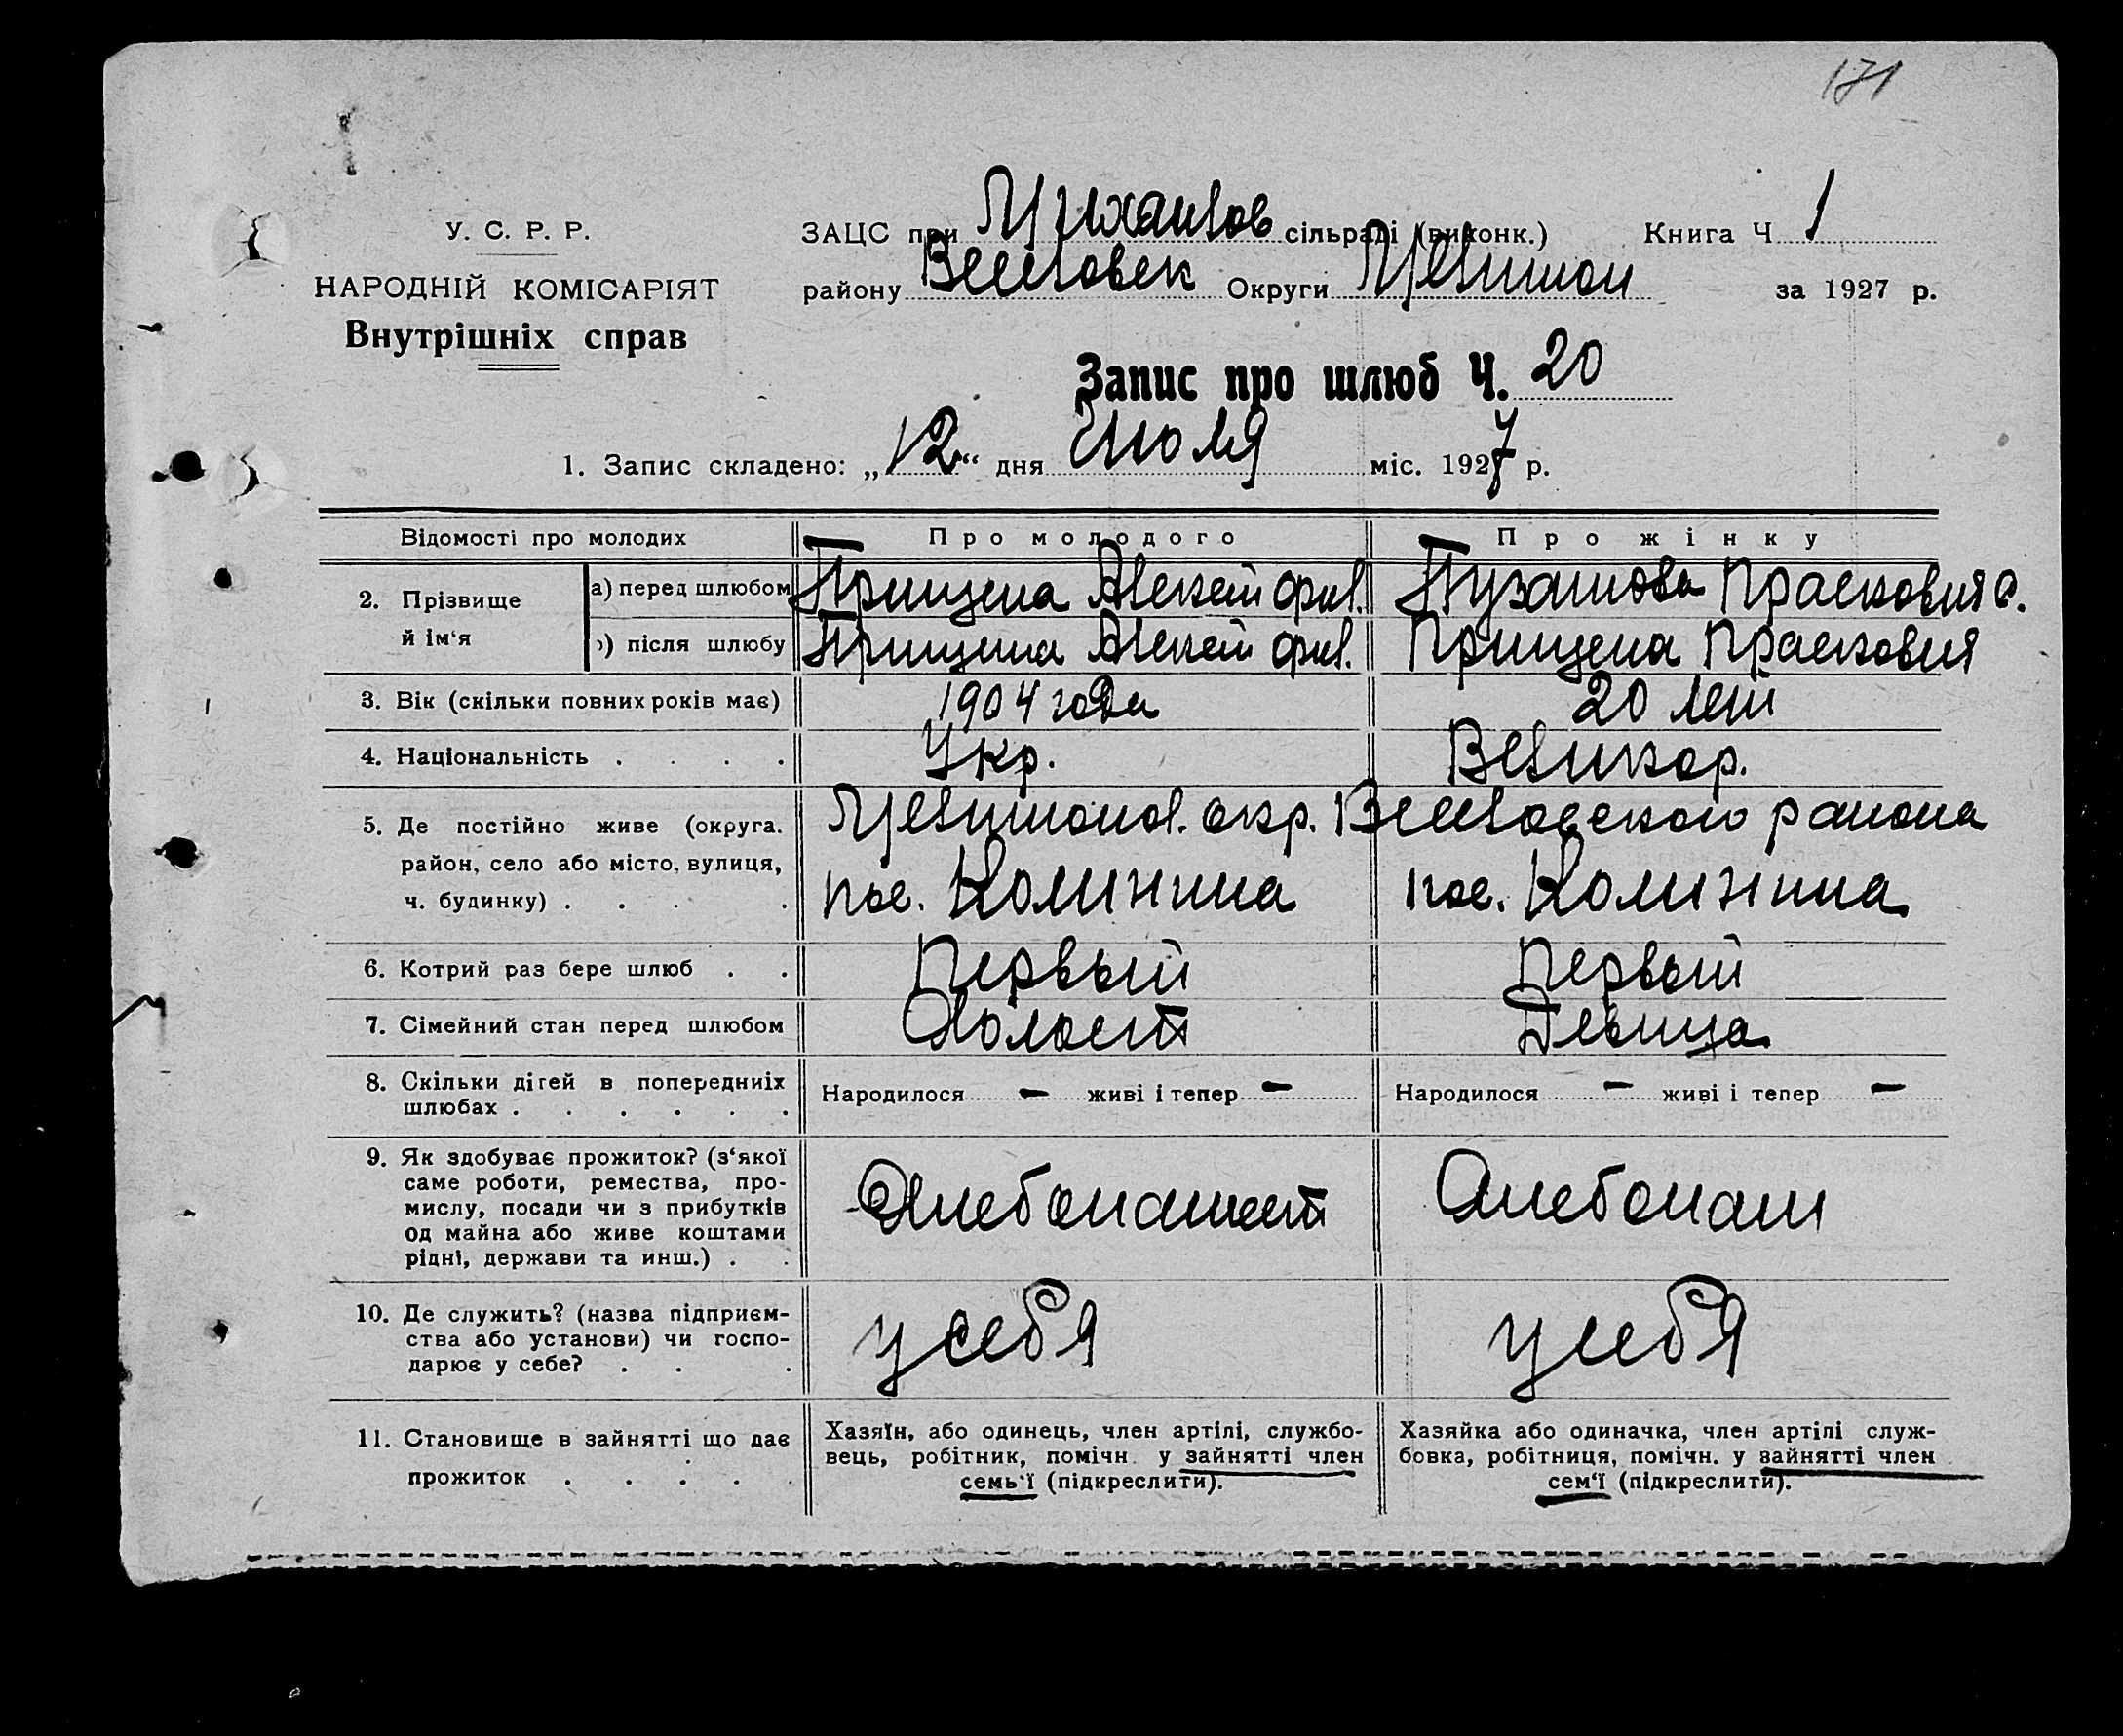 171
У. С. Р. Р.
НАРОДНІЙ КОМІСАРІЯТ
Внутрішніх справ
ЗАЦС при Михайлов сільраді (виконк.) Книга Ч 1
району Веселовск Округи Мелитоп за 1927 р.
Запис про шлюб Ч. 20
1. Запис складено: „12“ дня Июля міс. 1927 р.
Відомості про молодих Про молодого Про жінку
2. Прізвище й ім‘я
а) перед шлюбом Прищепа Алексей Фил. Пузанова Прасковия О.
б) після шлюбу Прищепа Алексей Фил. Прищепа Прасковия
3. Вік (скільки повних років має) 1904 года 20 лет
4. Національність . . . . Укр. Великор.
5. Де постійно живе (округа. район, село або місто, вулиця, ч. будинку) . . . .
Мелитопол. окр. Веселовского района
пос. Калинина пос. Калинина
6. Котрий раз бере шлюб . . Первый Первый
7. Сімейний стан перед шлюбом Холост Девица
8. Скільки дітей в попередниіх шлюбах . . . . . . Народилося — живі і тепер — Народилося — живі і тепер —
9. Як здобуває прожиток? (з‘якої
саме роботи, ремества, про-
мислу, посади чи з прибутків
од майна або живе коштами
рідні, держави та инш.) . .
Хлебопашест Хлебопаш
10. Де служить? (назва підприєм-
ства або установи) чи госпо-
дарює у себе? . . .
у себя у себя
11. Становище в зайнятті що дає
прожиток . . . . .
Хазяїн, або одинець, член артілі, службо-
вець, робітник, помічн. у зайнятті член
семь‘ї (підкреслити).
Хазяйка або одиначка, член артілі служ-
бовка, робітниця, помічн. у зайнятті член
сем‘ї (підкреслити).